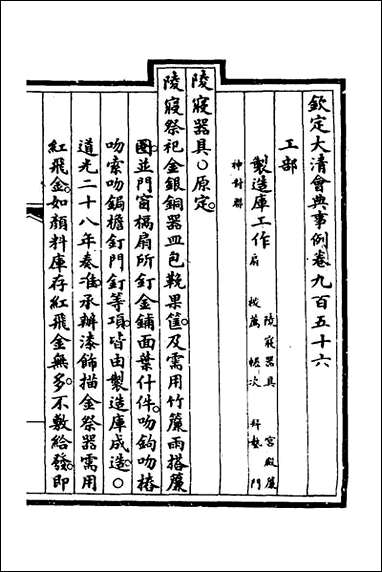 欽定大清會典事例卷九百五十六
工部
製造庫工作 陵寢器具 宮殿簾
扇 椅 帳次 科 門
神
陵寢器具○原定
陵寢祭祀金銀銅器皿包鞔果筐及需用竹簾雨搭簾
圈並門窗槅扇所釘金鋪面葉什件吻鉤吻樁
吻索吻錫檐釘門釘等項皆由製造庫成造○
道光二十八年奏准承辦漆飾描金祭器需用
紅飛金如顏料庫存紅飛金無多不敷給發即